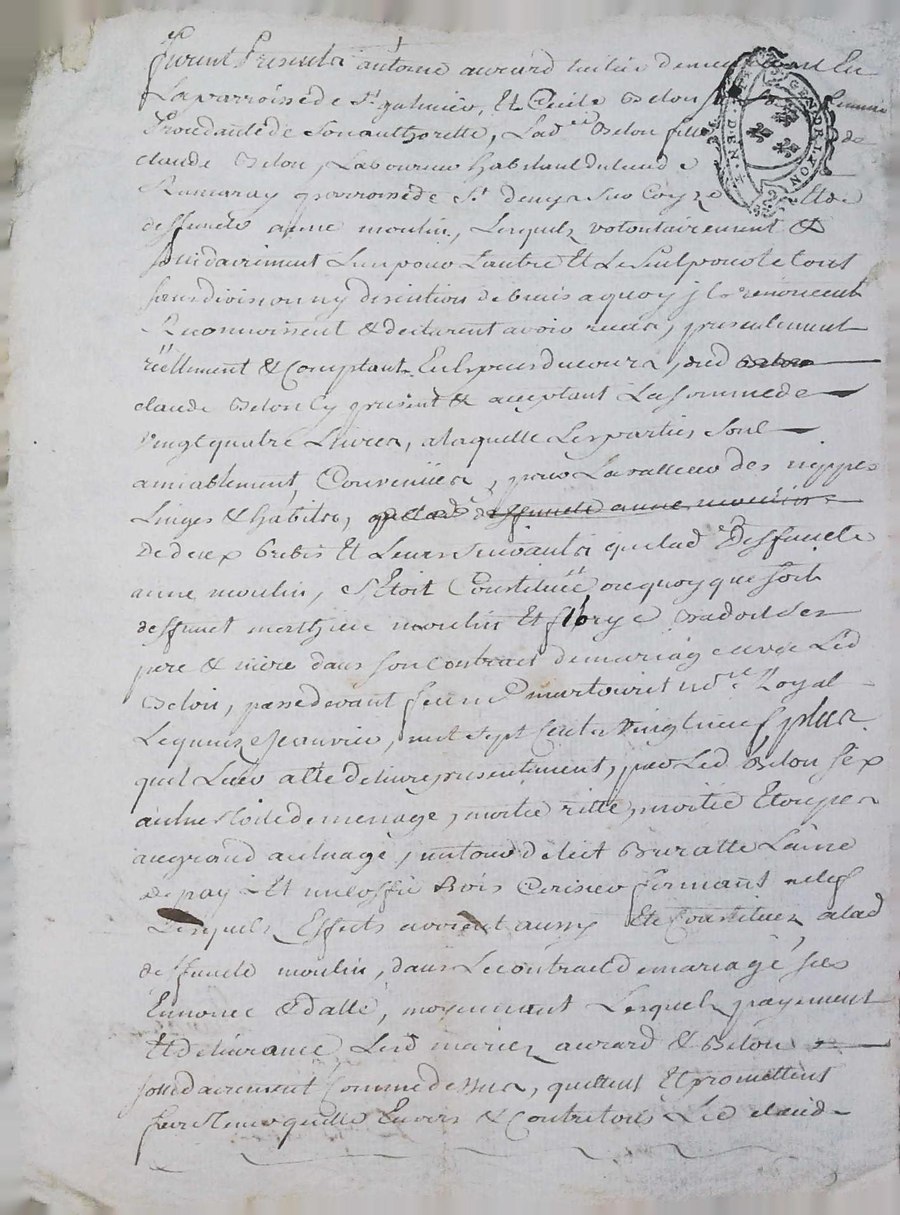 furent Presents antoine aurard tuilier demeurant En
La parroisse de St galmier, Et Cecile Belon sa femme
Procédante de Son authorette, Lad. Belon fille de
claude Belon, Laboureur habitant du lieu de
Ramaray parroisse de St denys Sur Coyze Et de
deffuncte anne moulin, Lesquels volontairement &
solidairement L'un pour L'autre Et Le Seul pour le tout
sans division ny discution de biens a quoy ils renoncent
Reconnoissent & declarent avoir receu, presentement
réellement & Comptant En Espece du cours, dud Belon
claude Belon Cy present & acceptant La Somme de
Vingt quatre Livres, a laquelle Les parties Sont
amiablement Convenües, pour La valleur des nippes
Linges & habits, deffuncte anne moulin
De deux brebis Et Leurs Suivants que lad Deffuncte
anne moulin, S'Etoit Constituée ou quoy que soit
deffunct matthieu moulin Et florye Ses
pere & mere dans son contrait de mariage avec Led
Belon, passé devant feu me martouret nore Royal
Le quinze Janvier, mil Sept Cent Vingt neuf plus
quil Leur a Eté delivré presentement, par Led Belon six
aulnes toile de menage, moitié ritte, moitié Etoupes
au grand aulnage, un tour de Lict Buratte Laine
De pay Et un coffre Bois Cerisier fermant a clef
Lesquels Effets avoient aussy Eté Constituez a lad
deffuncte moulin, dans Le contrait de mariage sus
Ennoncé & datté, moyennant Lesquels payement
Et delivrance Lesd mariez aurard & Belon
solidairement Comme dessus, quittent Et promettent
faire Tenir quitte Envers & Contre tous Led claude
GEN DE LYON